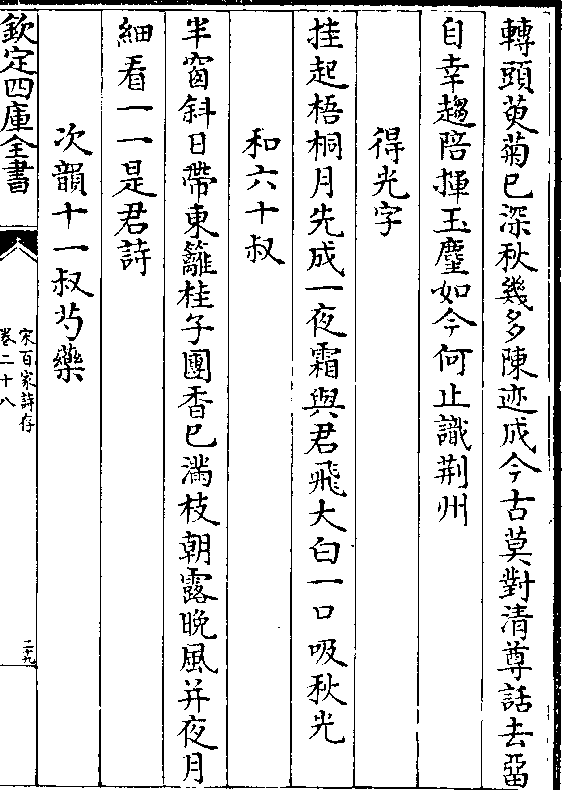 轉頭萸菊已深秋幾多陳迹成今古莫對清尊話去留
自幸趨陪揮玉麈如今何止識荆州
得光字
挂起梧桐月先成一夜霜與君飛大白一口吸秋光
和六十叔
半窗斜日帶東籬桂子團香已滿枝朝露晚風并夜月
細看一一是君詩
次韻十一叔芍藥
欽定四庫全書
宋百家詩存
卷二十八
二十九